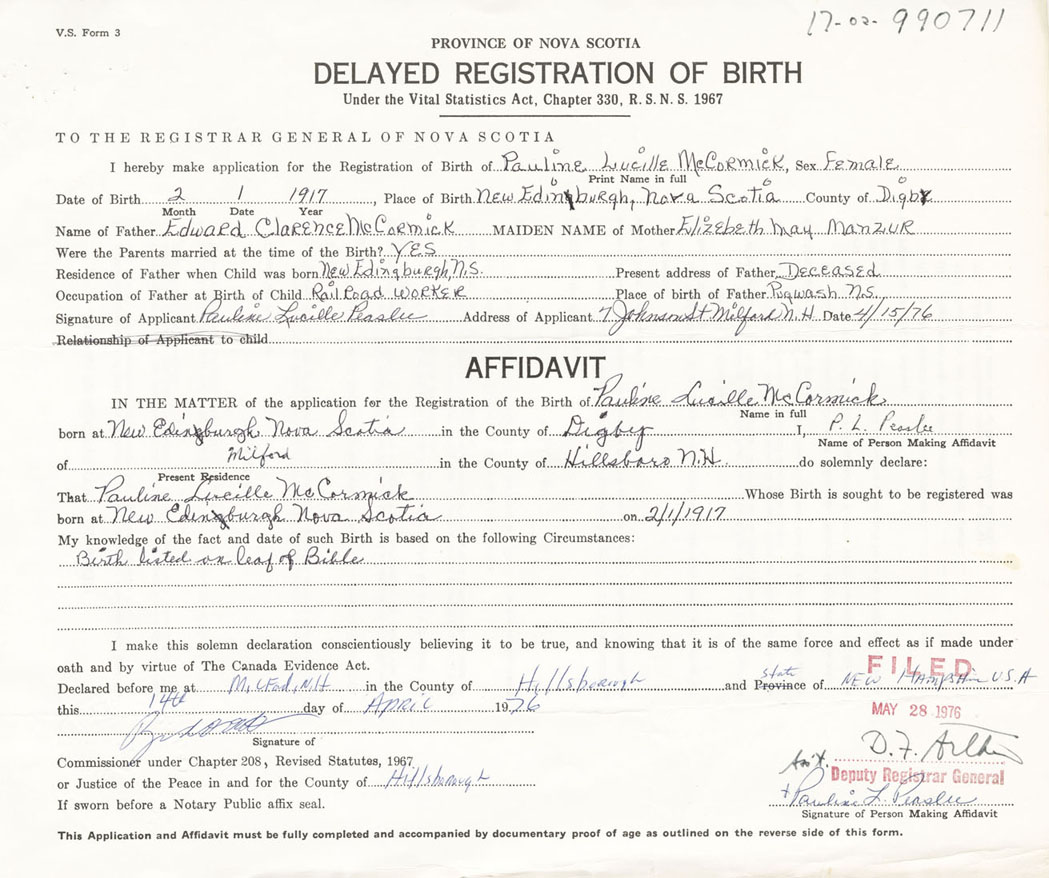 V.S. Form 3
17-02- 990711
PROVINCE OF NOVA SCOTIA
DELAYED REGISTRATION OF BIRTH
Under the Vital Statistics Act, Chapter 330, R. S. N. S. 1967
TO THE REGISTRAR GENERAL OF NOVA SCOTIA
I hereby make application for the Registration of Birth of Pauline Lucille McCormick, Sex Female
Print Name in full
Date of Birth 2 1 1917, Place of Birth New Edinburgh, Nova Scotia County of Digby
Month Date Year
Name of Father Edward Clarence McCormick MAIDEN NAME of Mother Elizebeth May Manzur
Were the Parents married at the time of the Birth? YES
Residence of Father when Child was born New Edingburgh, N.S. Present address of Father Deceased
Occupation of Father at Birth of Child Rail Road WORKER Place of birth of Father Pugwash N.S.
Signature of Applicant Pauline Lucille Peaslee Address of Applicant 7 Johnson St Milford N.H Date 4/15/76
Relationship of Applicant to child
AFFIDAVIT
IN THE MATTER of the application for the Registration of the Birth of Pauline Lucille McCormick
Name in full
born at New Edinburgh Nova Scotia in the County of Digby I, P. L. Peaslee
Name of Person Making Affidavit
of Milford in the County of Hillsboro N.H. do solemnly declare:
Present Residence
That Pauline Lucille McCormick Whose Birth is sought to be registered was
born at New Edinburgh Nova Scotia on 2/1/1917
My knowledge of the fact and date of such Birth is based on the following Circumstances:
Birth listed on leaf of Bible
I make this solemn declaration conscientiously believing it to be true, and knowing that it is of the same force and effect as if made under
oath and by virtue of The Canada Evidence Act.
Declared before me at Milford, N.H in the County of Hillsborough and Province of state NEW HAMPSHIRE U.S.A
FILED
this 14th day of APRIL 1976
MAY 28 1976
Signature of
Commissioner under Chapter 208, Revised Statutes, 1967
D. F.
or Justice of the Peace in and for the County of Hillsborough
Deputy Registrar General
+ Pauline L. Peaslee
If sworn before a Notary Public affix seal.
Signature of Person Making Affidavit
This Application and Affidavit must be fully completed and accompanied by documentary proof of age as outlined on the reverse side of this form.